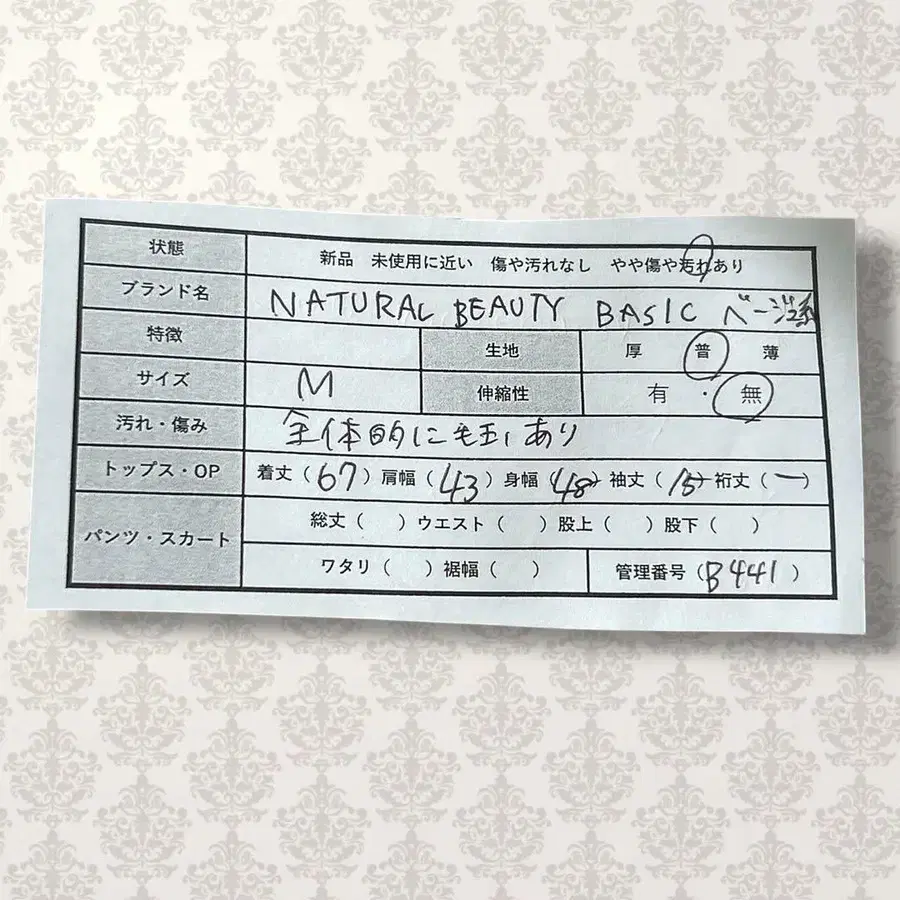 状態 新品 未使用に近い 傷や汚れなし やや傷や汚れあり
ブランド名 NATURAL BEAUTY BASIC ベージュ系
特徴 生地 厚 普 薄
サイズ M 伸縮性 有 ・ 無
汚れ・傷み 全体的に毛玉あり
トップス・OP 着丈（67）肩幅（43）身幅（48）袖丈（15）裄丈（ー）
パンツ・スカート 総丈（ ）ウエスト（ ）股上（ ）股下（ ）
ワタリ（ ）裾幅（ ） 管理番号（B441）